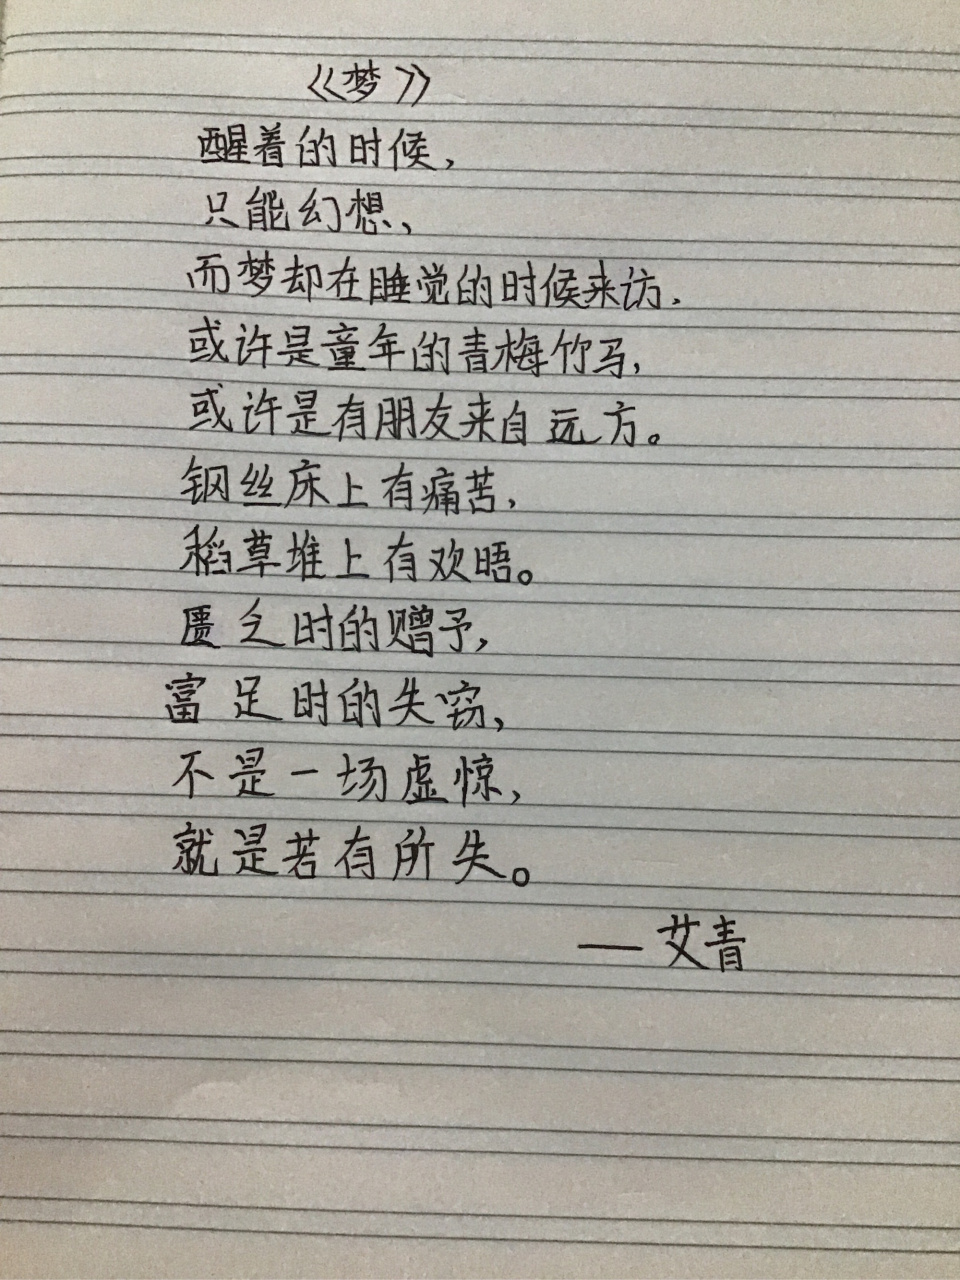 《梦》
醒着的时候,
只能幻想、
而梦却在睡觉的时候来访.
或许是童年的青梅竹马,
或许是有朋友来自远方。
钢丝床上有痛苦,
稻草堆上有欢晤。
匮乏时的赠予,
富足时的失窃、
不是一场虚惊,
就是若有所失。
—艾青